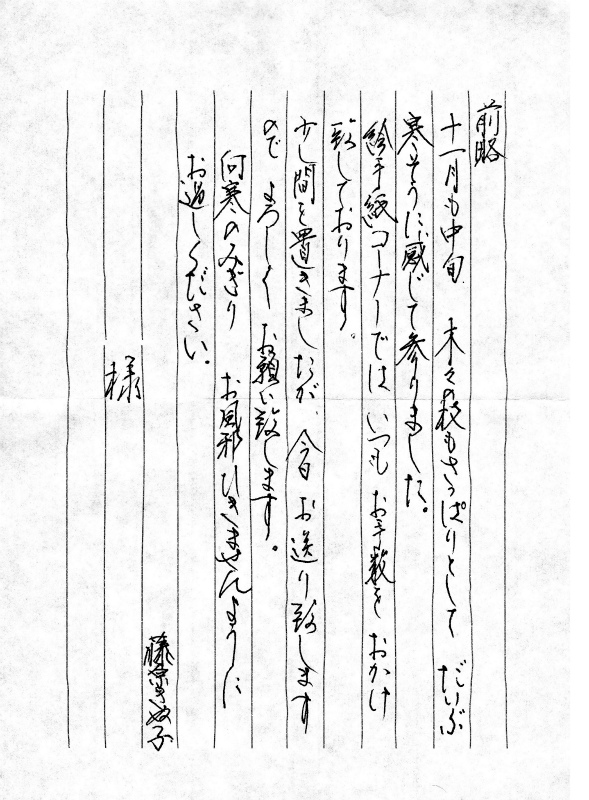 前略
十一月も中旬 木々の枝もさっぱりとして だいぶ
寒そうに感じて参りました。
絵手紙コーナーでは いつも お手数を おかけ
致しております。
少し間を置きましたが、今日 お送り致します
ので よろしく お願い致します。
向寒のみぎり お風邪ひきませんように
お過しください。
藤原
様